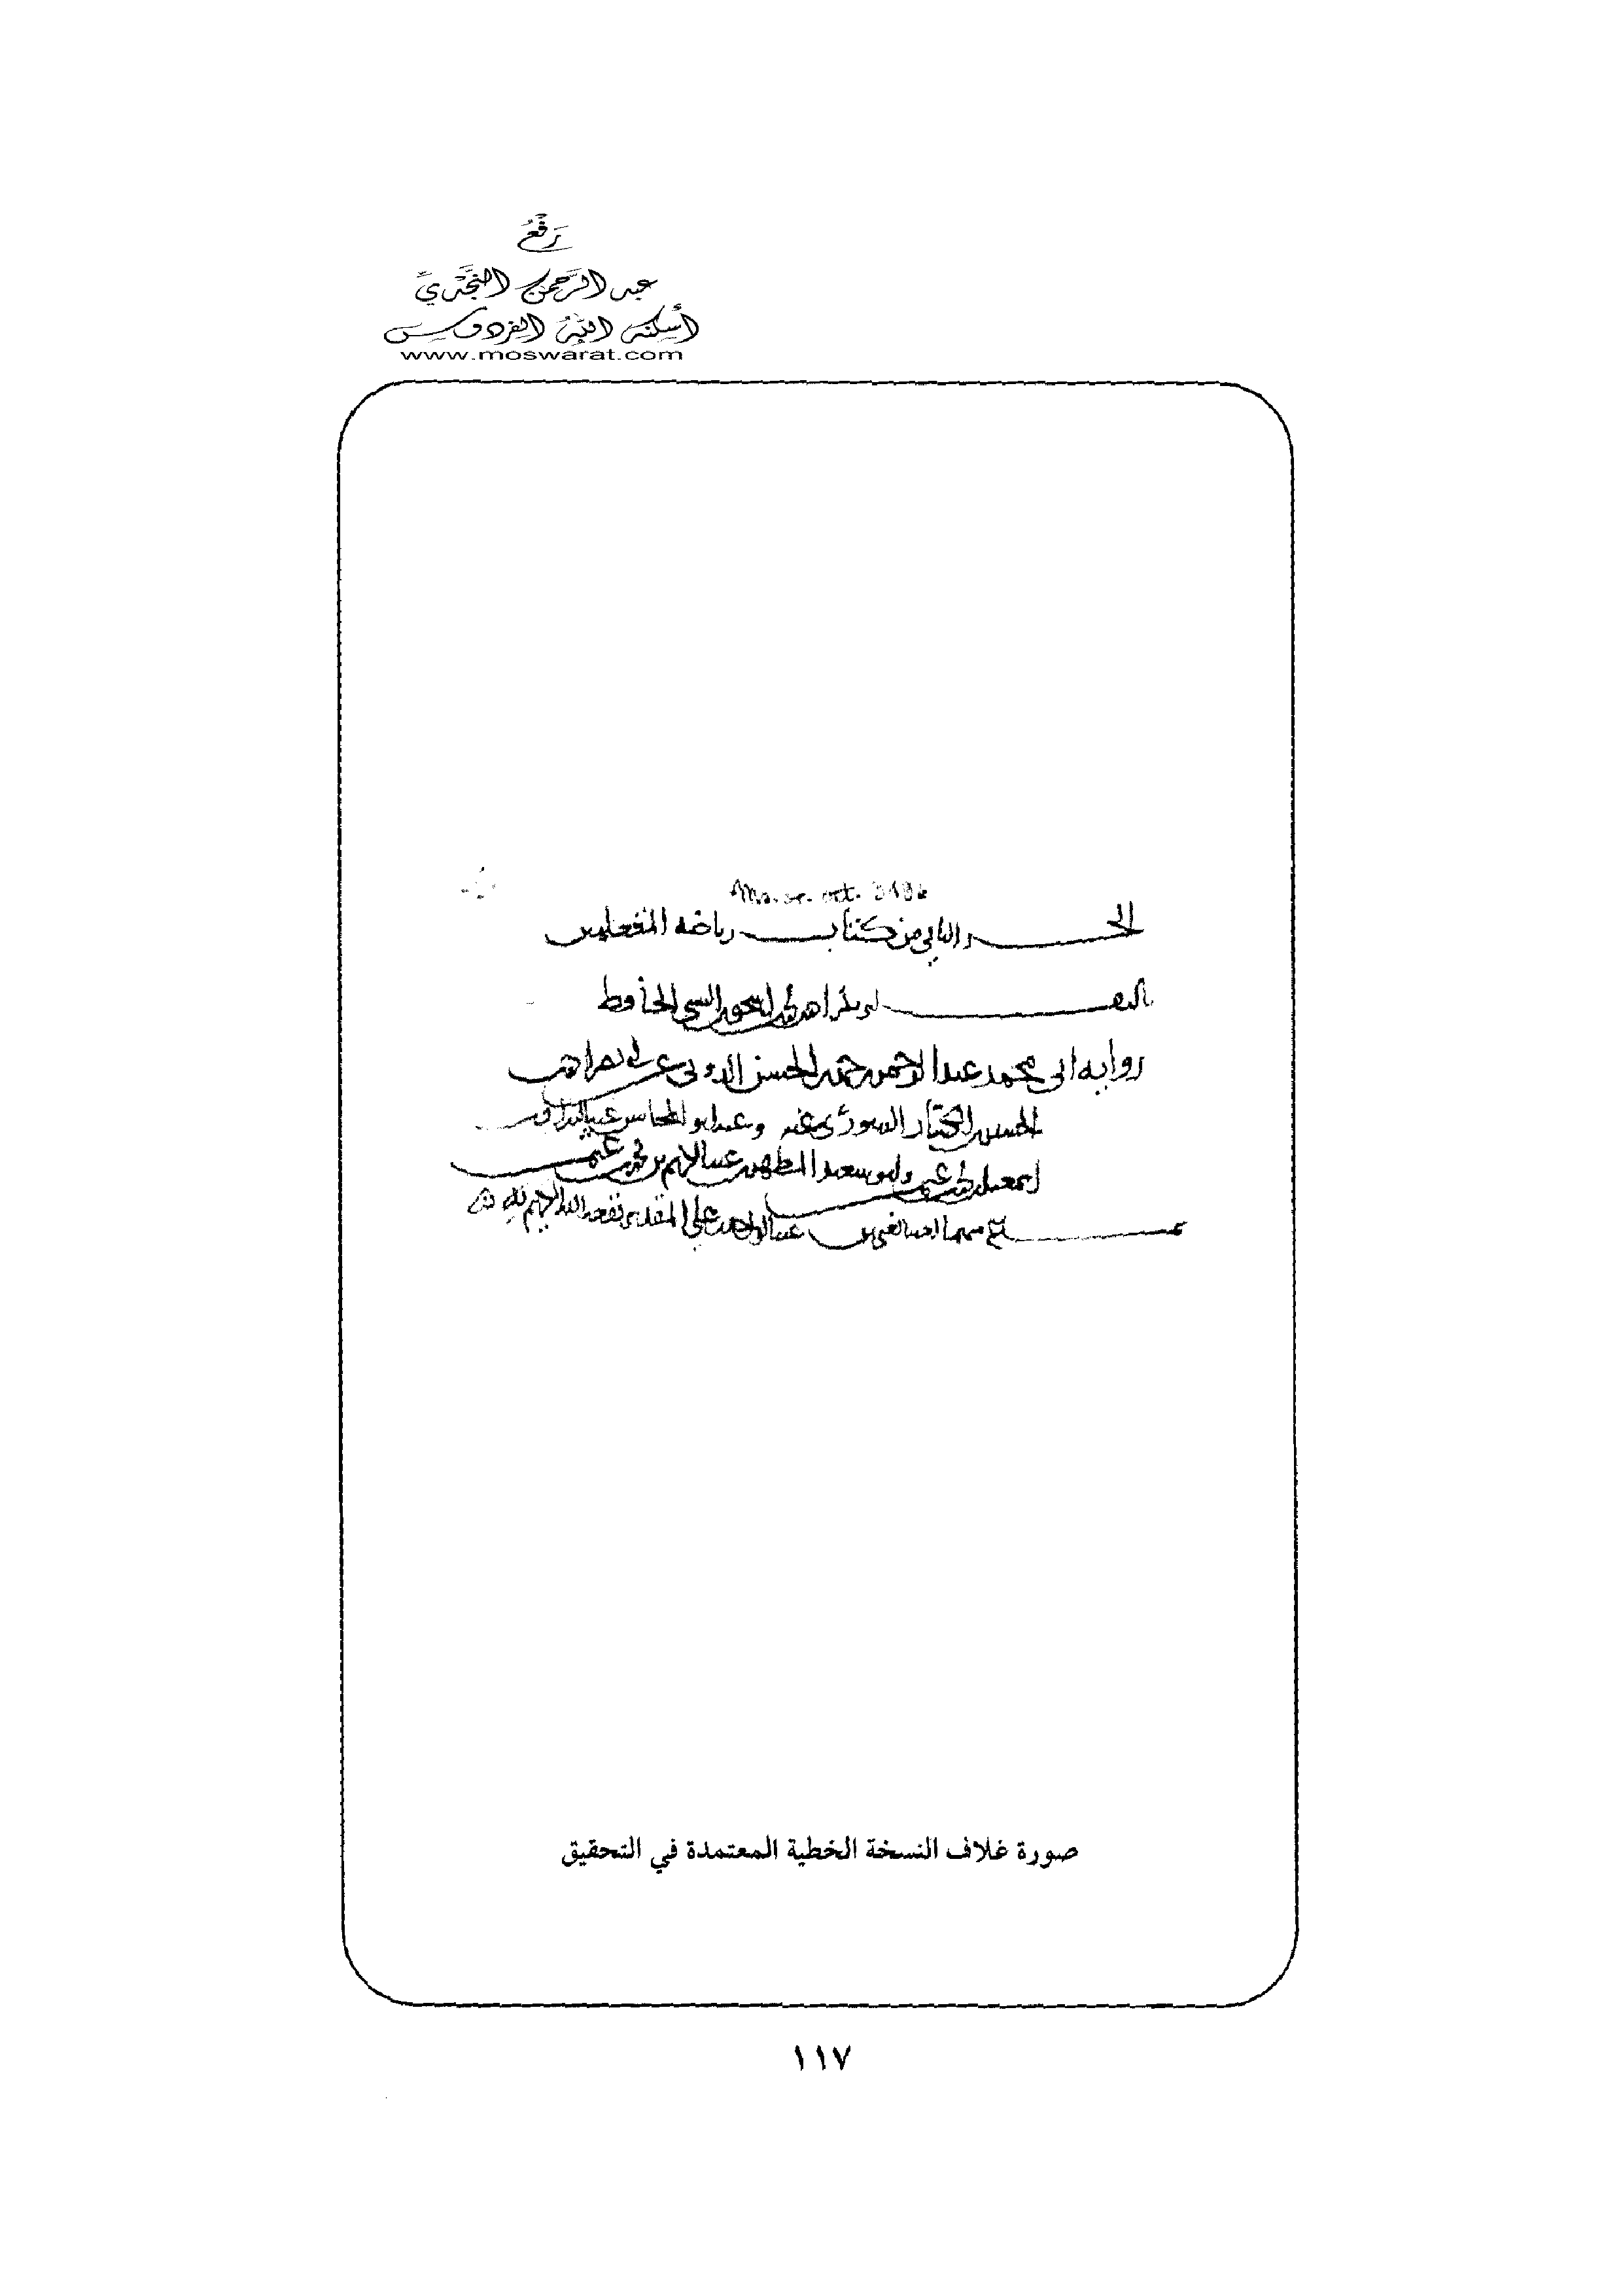 رفع
عبد الرحمن النجدي
أسكنه الله الفردوس
www.moswarat.com
Ms. or. oct.
الجزء الثاني من كتاب رياضه المتعلمين
تاليف ابي بكر احمد بن محمد بن اسحق السني الحافظ
روايه ابي محمد عبد الرحمن بن حمد بن الحسن الدوني عن ابي نصر احمد بن
الحسين بن الكسار الدينوري عنه وعنه ابو المحاسن عبد الرزاق بن
اسمعيل بن محمد وابو سعد المطهر بن عبد الكريم بن محمد
سماع منهما لعبد الغني بن عبد الواحد بن علي المقدسي نفعه الله الكريم به
صورة غلاف النسخة الخطية المعتمدة في التحقيق
١١٧